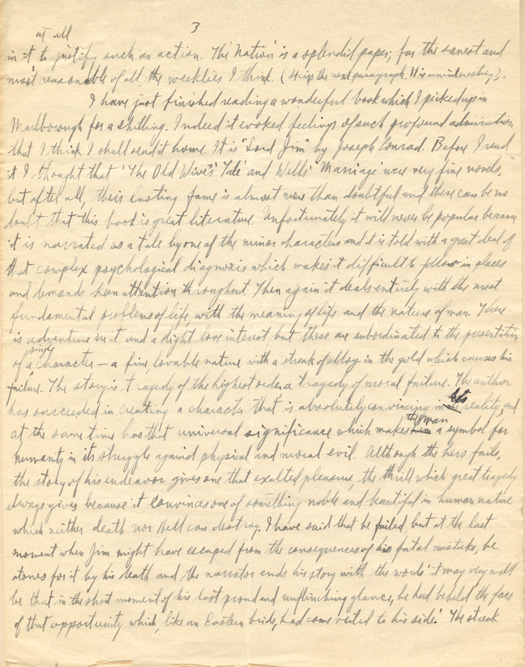 at all
3
in it to justify such an action. The 'Nation' is a splendid paper; far the sanest and
most reasonable of all the weeklies I think. (Skip the next paragraph. It is uninteresting).
I have just finished reading a wonderful book which I picked up in
Marlborough for a shilling. Indeed it evoked feelings of such profound admiration
that I think I shall send it home. It is 'Lord Jim' by Joseph Conrad. Before I read
it I thought that 'The Old Wives' Tale' and Wells' 'Marriage' were very fine novels,
but after all, their lasting fame is almost more than doubtful and there can be no
doubt that this book is great literature. Unfortunately it will never be popular because
it is narrated as a tale by one of the minor characters and it is told with a great deal of
that complex psychological diagnosis which makes it difficult to follow in places
and demands keen attention throughout. Then again it deals entirely with the most
fundamental problems of life with the meaning of life and the nature of man. There
is adventure in it and a slight love interest but these are subordinated to the presentation
of a single character – a fine lovable nature with a streak of alloy in the gold which causes his
failure. The story is tragedy of the highest order, a tragedy of moral failure. The author
has succeeded in creating a character that is absolutely convincing in its reality, and
at the same time has that universal significance which makes the man a symbol for
humanity in its struggle against physical and moral evil. Although the hero fails,
the story of his endeavor gives one that exalted pleasure, the thrill which great tragedy
always gives because it convinces one of something noble and beautiful in human nature
which neither death nor Hell can destroy. I have said that he failed but at the last
moment when Jim might have escaped from the consequences of his fatal mistake, he
atones for it by his death and, the narrator ends his story with the words 'it may very well
be that in the short moment of his last proud and unflinching glance, he had beheld the face
of that opportunity which, like an Eastern bride, had come veiled to his side.' The streak